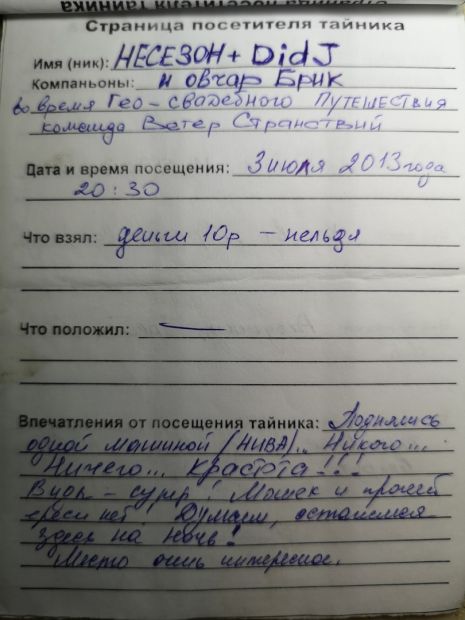 Страница посетителя тайника
Имя (ник): НЕСЕЗОН + DidJ
Компаньоны: и овчар Брик
во время Гео-свадебного Путешествия
команда Ветер Странствий
Дата и время посещения: 3 июля 2013 года
20:30
Что взял: деньги 10р - нельзя
Что положил: —
Впечатления от посещения тайника: Поднялись
одной машиной (НИВА)... Никого...
Ничего... Красота!!!
Виды - супер! Мошек и прочей
ереси нет. Думаем, остаёмся
здесь на ночь!
Место очень интересное.